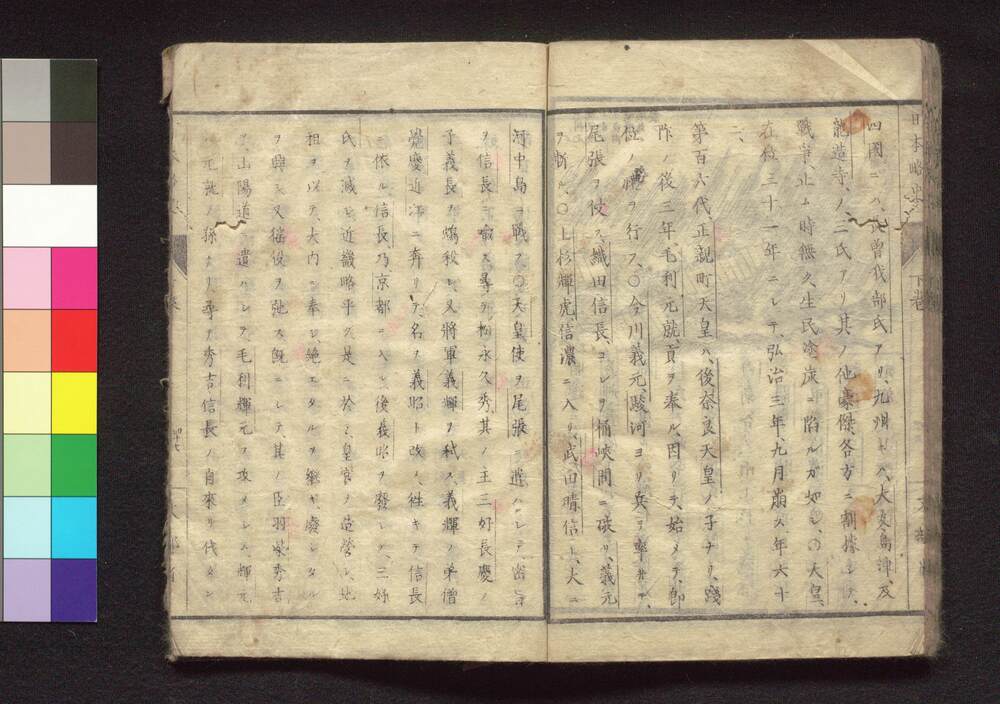 日本略史 下卷
四國ニハ、長曾我部氏アリ、九州ニハ、大友、島津、及
龍造寺ノ三氏アリ其ノ他豪傑各方ニ割據シテ、
戰爭止ム時無ク生民塗炭ニ陷ルガ如シ、〇天皇、
在位三十一年ニシテ弘治三年、九月崩ス年六十
二、
第百六代、正親町天皇ハ、後奈良天皇ノ子ナリ、踐
阼ノ後三年毛利元就貢ヲ奉ル、因リテ、始メテ、即
位ノ禮ヲ行フ、〇今川義元駿河ヨリ兵ヲ率ヰテ、
尾張ヲ伐ス織田信長、コレヲ桶峽間ニ破リ、義元
ヲ斬ル、〇上杉輝虎信濃ニ入リ、武田晴信ト、大ニ
河中島ニ戰フ〇天皇使ヲ尾張ニ遣ハシテ、密旨
ヲ信長ニ喩ス尋デ松永久秀、其ノ主三好長慶ノ
子義長ヲ鴆殺シ、又將軍義輝ヲ弑ス、義輝ノ弟僧
覺慶近江ニ奔リテ名ヲ義昭ト改メ、往キテ信長
ニ依ル、信長、乃、京都ニ入シ後義昭ヲ發シテ、三好
氏ヲ滅シ近畿略平グ是ニ於テ、皇宮ヲ造營シ、地
租ヲ以テ、大内ニ奉ジ、絶エタルヲ繼ギ、廢シタル
ヲ興シ又徭役ヲ弛ス既ニシテ、其ノ臣羽柴秀吉
ヲ山陽道ニ遣ハシテ毛利輝元ヲ攻メシム、輝元
元就ノ孫ナリ尋デ秀吉信長ノ自來リ代タン